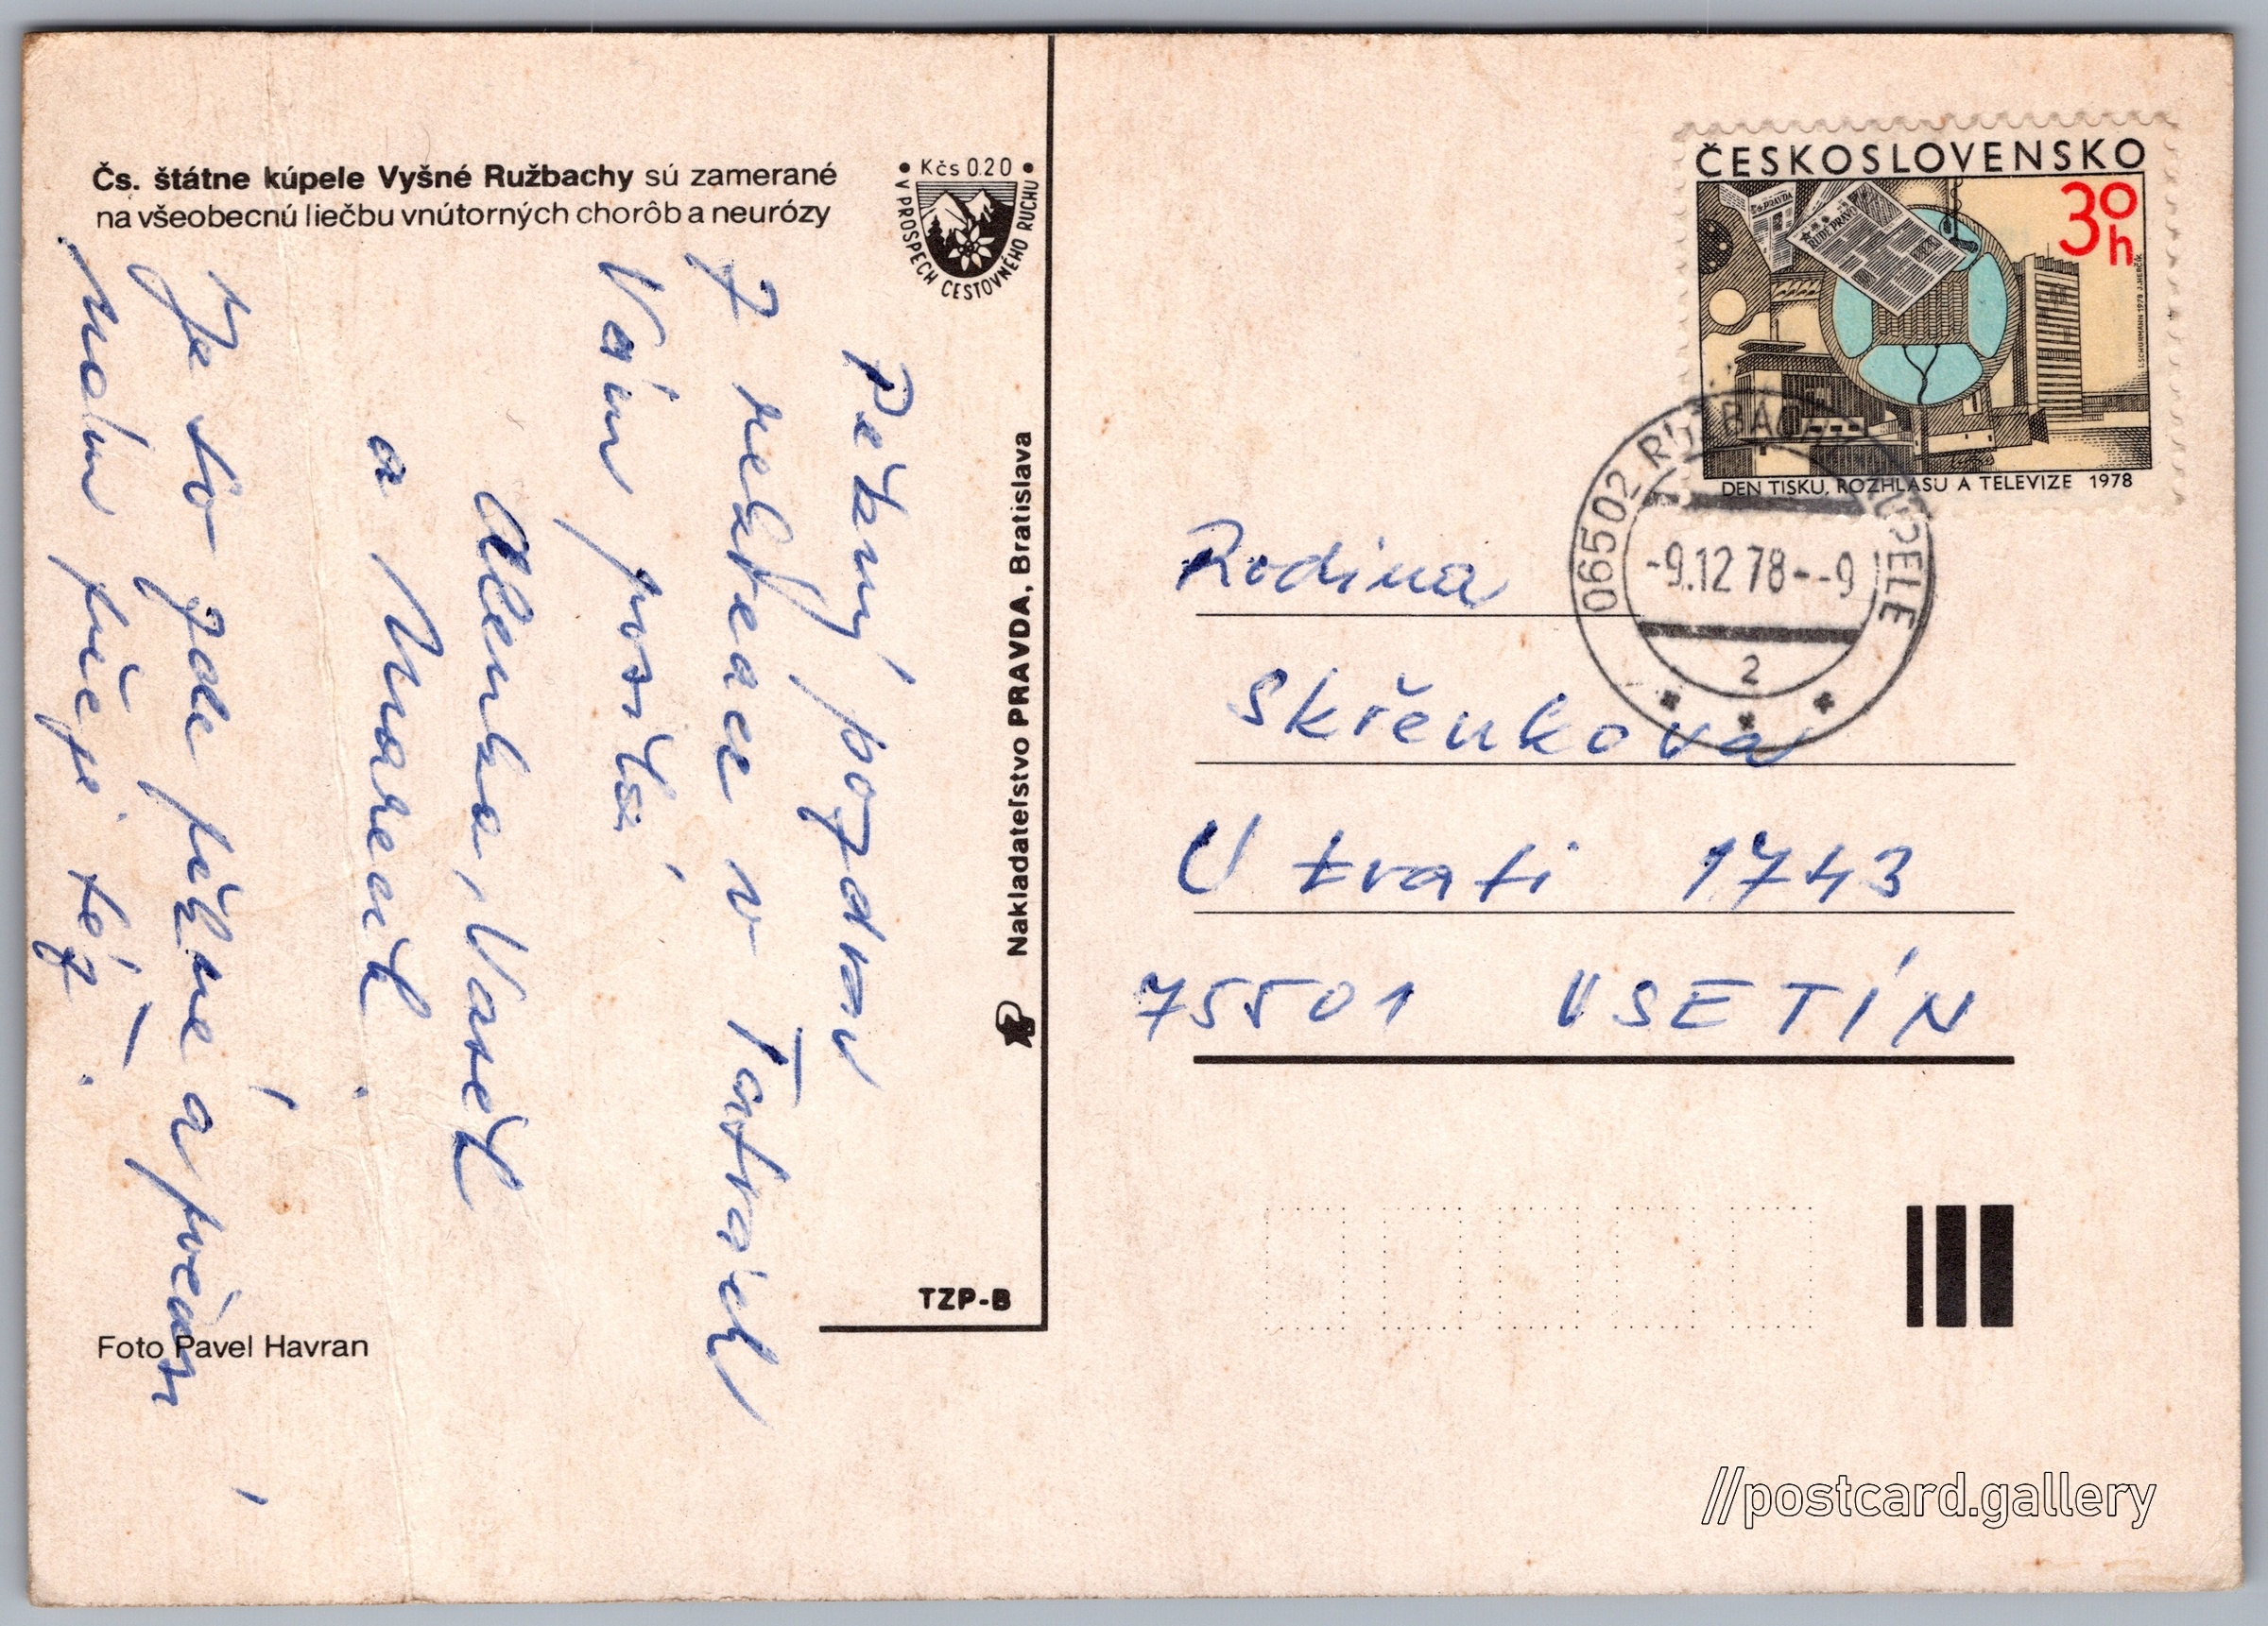 Čs. štátne kúpele Vyšné Ružbachy sú zamerané
na všeobecnú liečbu vnútorných chorôb a neurózy
• Kčs 0.20 •
V PROSPECH CESTOVNÉHO RUCHU
Pěkný pozdrav
z rekreace v Tatrách
Vám posílá
Alenka, Vašek
a Mareček
Je to zde pěkné a
nám přeje též.
Nakladateľstvo PRAVDA, Bratislava
TZP-B
Foto Pavel Havran
ČESKOSLOVENSKO
30
h
PRAVDA
RUDÉ PRÁVO
I.SCHURMANN 1978 J.HERČÍK
DEN TISKU, ROZHLASU A TELEVIZE 1978
065 02 RUŽBACHY KÚPELE
-9.12 78--9
2
Rodina
Skřenkova
U trati 1743
75501 VSETÍN
//postcard.gallery